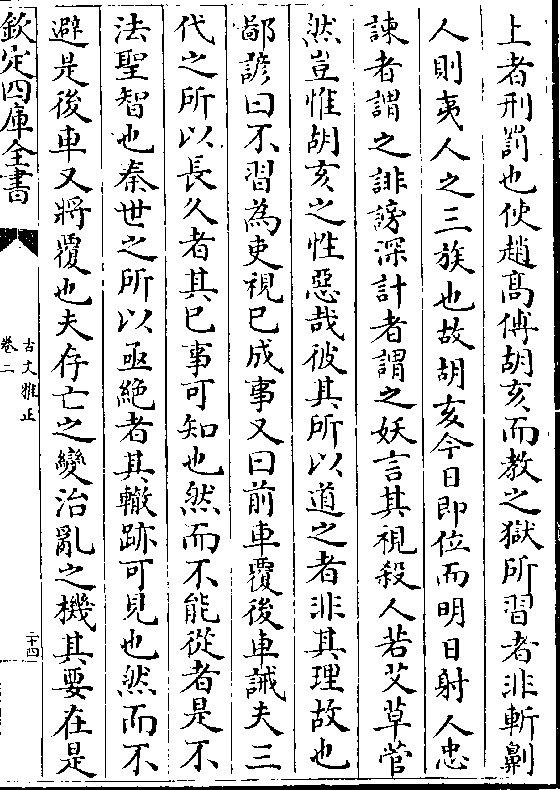 上者刑罰也使趙髙傅胡亥而教之獄所習者非斬劓
人則夷人之三族也故胡亥今日即位而明日射人忠
諫者謂之誹謗深計者謂之妖言其視殺人若艾草菅
然豈惟胡亥之性惡哉彼其所以道之者非其理故也
鄙諺曰不習為吏視已成事又曰前車覆後車誡夫三
代之所以長久者其已事可知也然而不能從者是不
法聖智也秦世之所以亟絶者其轍跡可見也然而不
避是後車又將覆也夫存亡之變治亂之機其要在是
欽定四庫全書
古文雅正
卷二
二十四